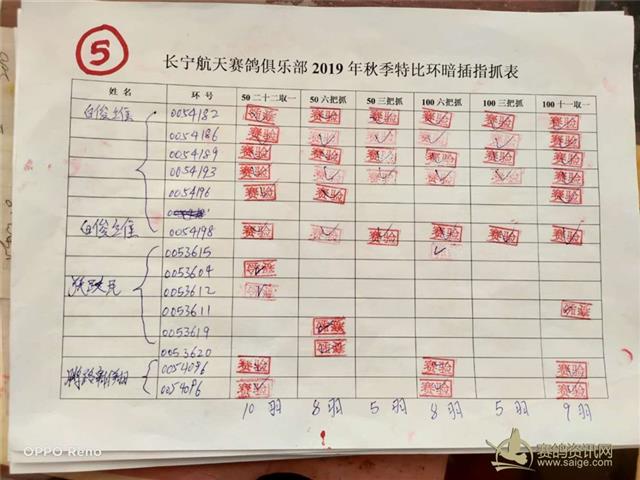 5
长宁航天赛鸽俱乐部 2019 年秋季特比环暗插指抓表
姓 名 环 号 50 二十二取一 50 六把抓 50 三把抓 100 六把抓 100 三把抓 100 十一取一
0054182 赛验 赛验 赛验 赛验 赛验
0054186 赛验 赛验 赛验 赛验 赛验 赛验
0054189 赛验 赛验 赛验 赛验 赛验 赛验
0054193 赛验 赛验 赛验 赛验 赛验 赛验
0054196 赛验 赛验 赛验
0054198 赛验 赛验 赛验 赛验 赛验 赛验
0053615
0053604
0053612
0053611
0053619
0053620
0054086 赛验 赛验 赛验
0054096 赛验 赛验 赛验
10 羽 8 羽 5 羽 8 羽 5 羽 9 羽
OPPO Reno
赛鸽资讯网
www.saige.com